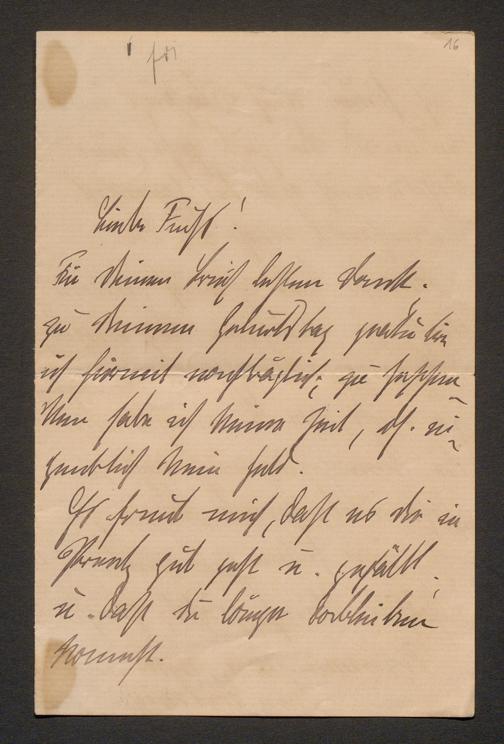 16
Für deinen Brief besten Dank.
zu deinem Geburtstag gratulire
ich hiermit nachträglich; zu
habe ich keine Zeit, d. h. ei-
gentlich kein Geld.
Es freut mich, daß es dir in
gut geht u. gefällt.
u. daß du länger dortbleiben
kannst.